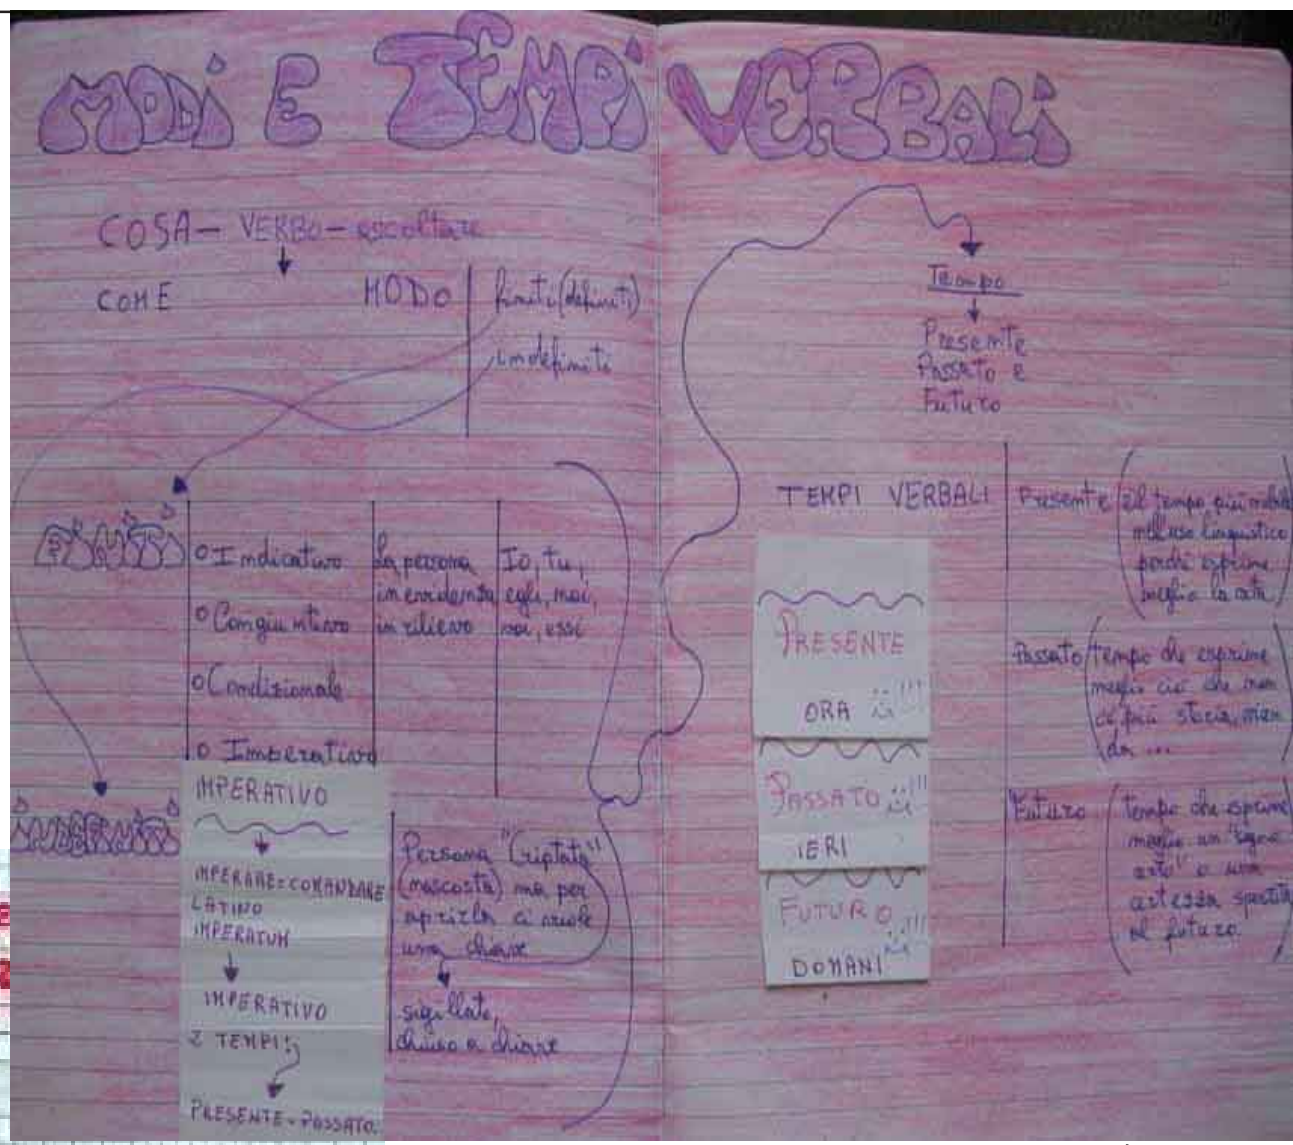 MODI E TEMPI VERBALI
COSA – VERBO – ascoltare
COME
MODO
finiti (definiti)
indefiniti
FINITI
o Indicativo
o Congiuntivo
o Condizionale
o Imperativo
La persona
in evidenza
in rilievo
Io, tu,
egli, noi,
voi, essi
INDEFINITI
IMPERATIVO
IMPERARE=COMANDARE
LATINO
IMPERATUM
IMPERATIVO
2 TEMPI:
PRESENTE-PASSATO
Persona "Criptata"
(nascosta) ma per
aprirla ci vuole
una chiave
sigillato,
chiuso a chiave
Tempo
Presente
Passato e
Futuro
TEMPI VERBALI
PRESENTE
ORA !!!
PASSATO !!!
IERI
FUTURO !!!
DOMANI
Presente
il tempo più
nell'uso linguistico
perché esprime
meglio la
Passato
tempo che esprime
meglio ciò che non
c'è più storia,
Futuro
tempo che esprime
meglio un
o una
al futuro.